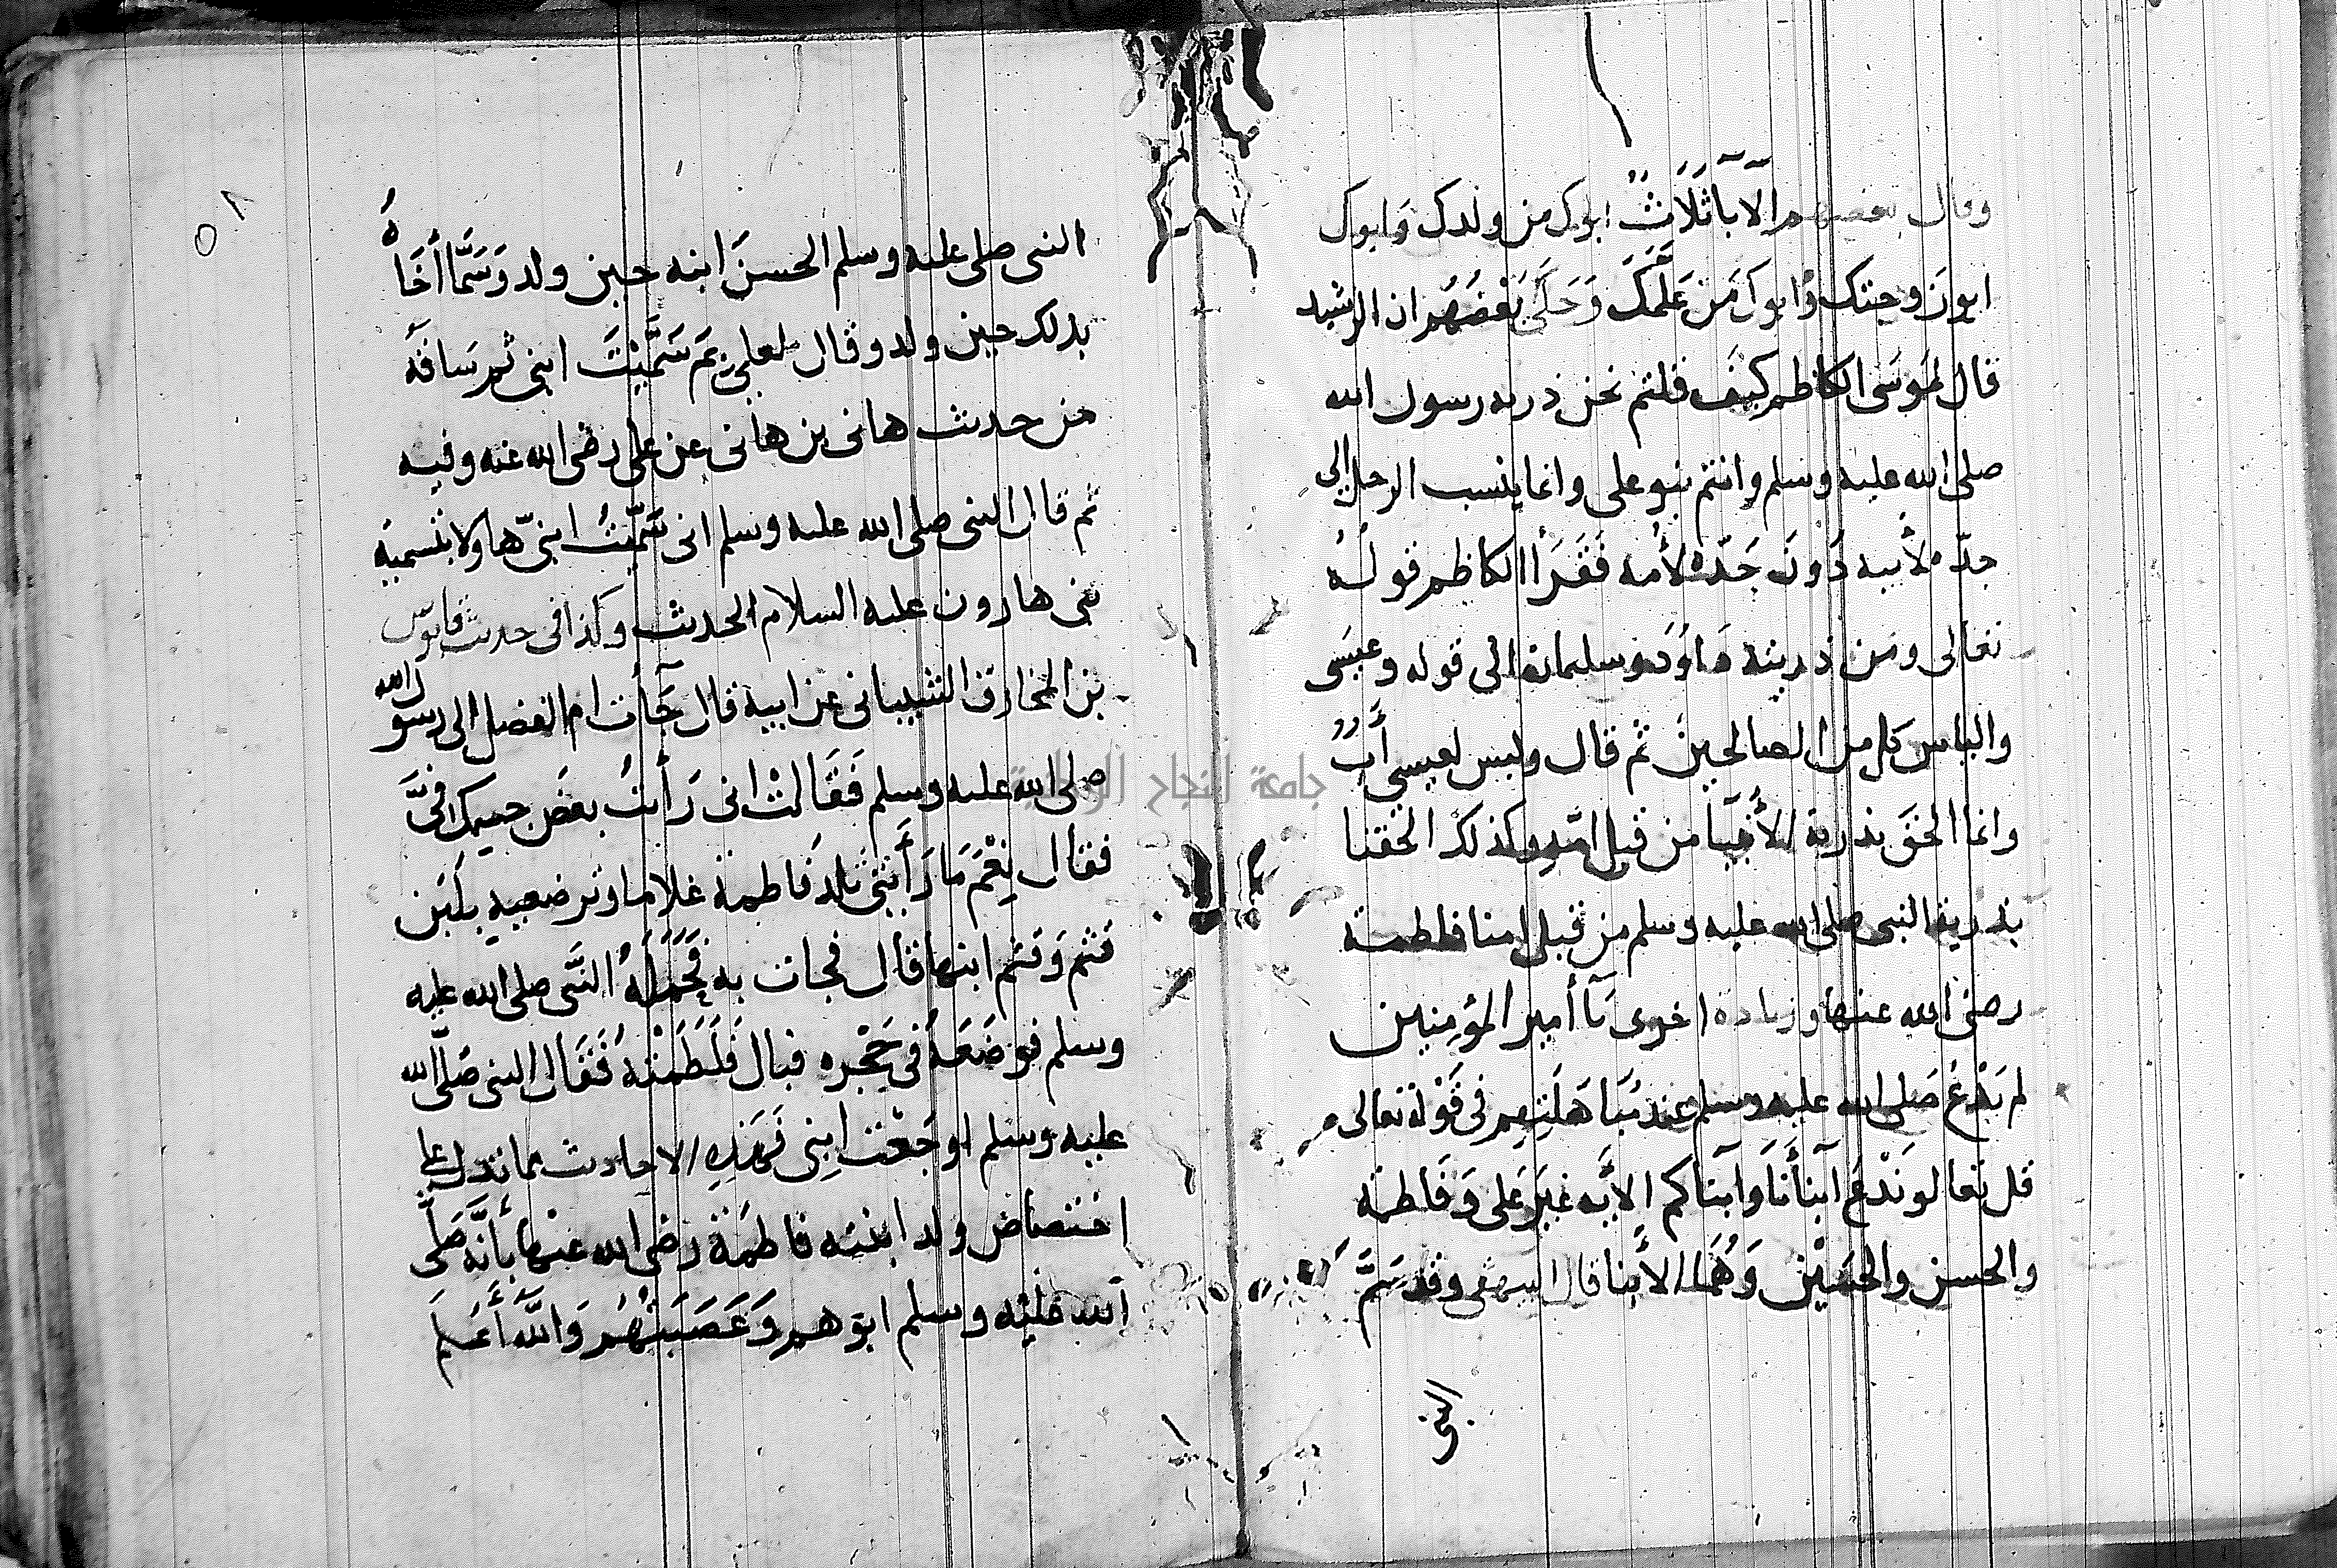 وقال بعضهم الآبآ ثَلَاثٌ ابوك من ولدك وَابوك
ابو زوجتك وَابوك مَن عَلَّمَكَ وَحَكَى بَعْضُهُم ان الرشيد
قال لموسَى الكاظم كيفَ قلتم نحن ذريه رسول الله
صلى الله عليه وسلم وانتم بنو على وانما ينسب الرجل الى
جدّه لأبيه دُونَ جَدّه لأمه فَقَرَأ الكاظم قولُهُ
تعالى ومن ذريته داوُدَ وسليمان الى قوله وعيسَى
والياس كل من الصالحين ثم قال وليس لعيسى أَبٌ
وانما الحق بذرية الأنبيآ من قبل امّه وكذلك الحقنا
بذرية النبى صلى الله عليه وسلم من قبل امنا فاطمة
رضى الله عنها وزيادة اخرى يَآ أمير المؤمنين
لم يَدْعُ صَلى الله عليه وسلم عند مُبَاهَلَتِهم فى قَوْله تعالى
قل تعالو نَدْعُ ابنأنَا وَابناكم الأيه غيَر عَلى وَفَاطمه
والحسن والحسَيْن وَهُمَا الأبنا قال البيهقى وقد سَمَّى
النبى
٥٨
النبى صلى عليه وسلم الحسنَ ابنه حين ولد وَسَمَّا أخَاهُ
بذلك حين ولد وقال لعلىّ بمَ سَمَّيْتَ ابنى ثم سَاقَه
من حديث هانى بن هانى عن على رضى الله عنه وفيه
ثم قال النبى صلى الله عليه وسلم انى سَمَّيْتُ ابنىّ هاولا بتسمية
بنى هارون عليه السلام الحديث وكذا فى حديث قابوس
بن المخارق الشيبانى عن ابيه قال جَآت ام الفضل الى رسول الله
صلى الله عليه وسلم فَقَالتْ انى رَأيتُ بعضَ جسمك فىَّ
فقال نِعْمَ مَا رَأَيتى تلد فَاطمة غلاما وترضعيه بلَبَن
قثم وَقثم ابنها قال فجات به فَحَمَلَهُ النَّبى صلى الله عليه
وسلم فوضَعَهُ فى حَجْرِه فبال فَلَطَمَتْهُ فَقَال النبى صَلّى الله
عليه وسلم اوجَعْت ابنى فَهَذِهِ الاحاديث مما تدل على
اختصاص ولد ابنته فاطمَة رضى الله عنها بأنَّه صَلَّى
الله عليْه وسلم ابوهم وَعَصَبَتُهُم وَاللَّهُ أَعْلَم
جامعة النجاح الوطنية